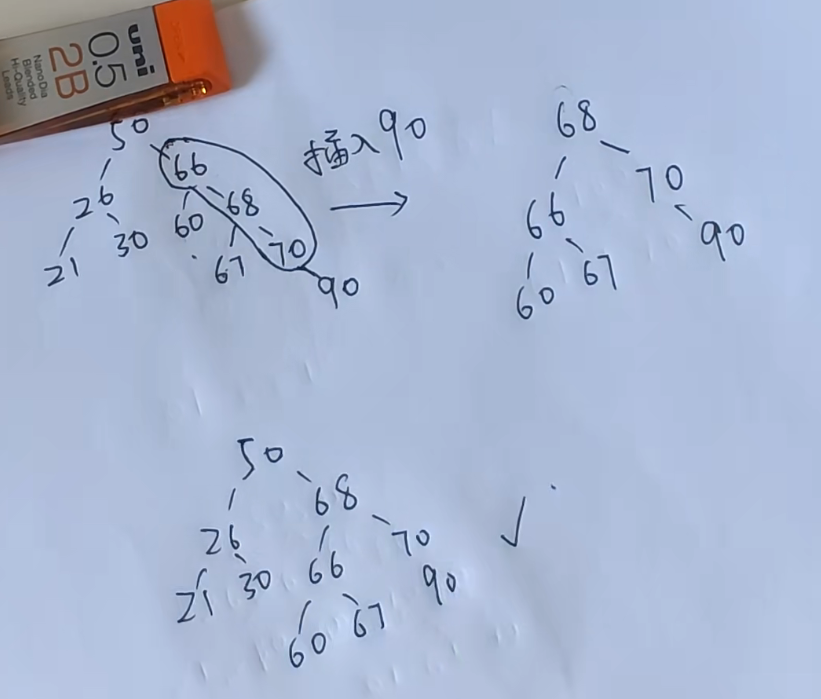 uni
0.5
2B
NanoDia
Blended
Hi-Quality
Leads
50
66
插入90
26
60 68
21 30
67 70
90
68
70
66
90
60 67
50
68
26
70
21 30 66
90
60 67
✓